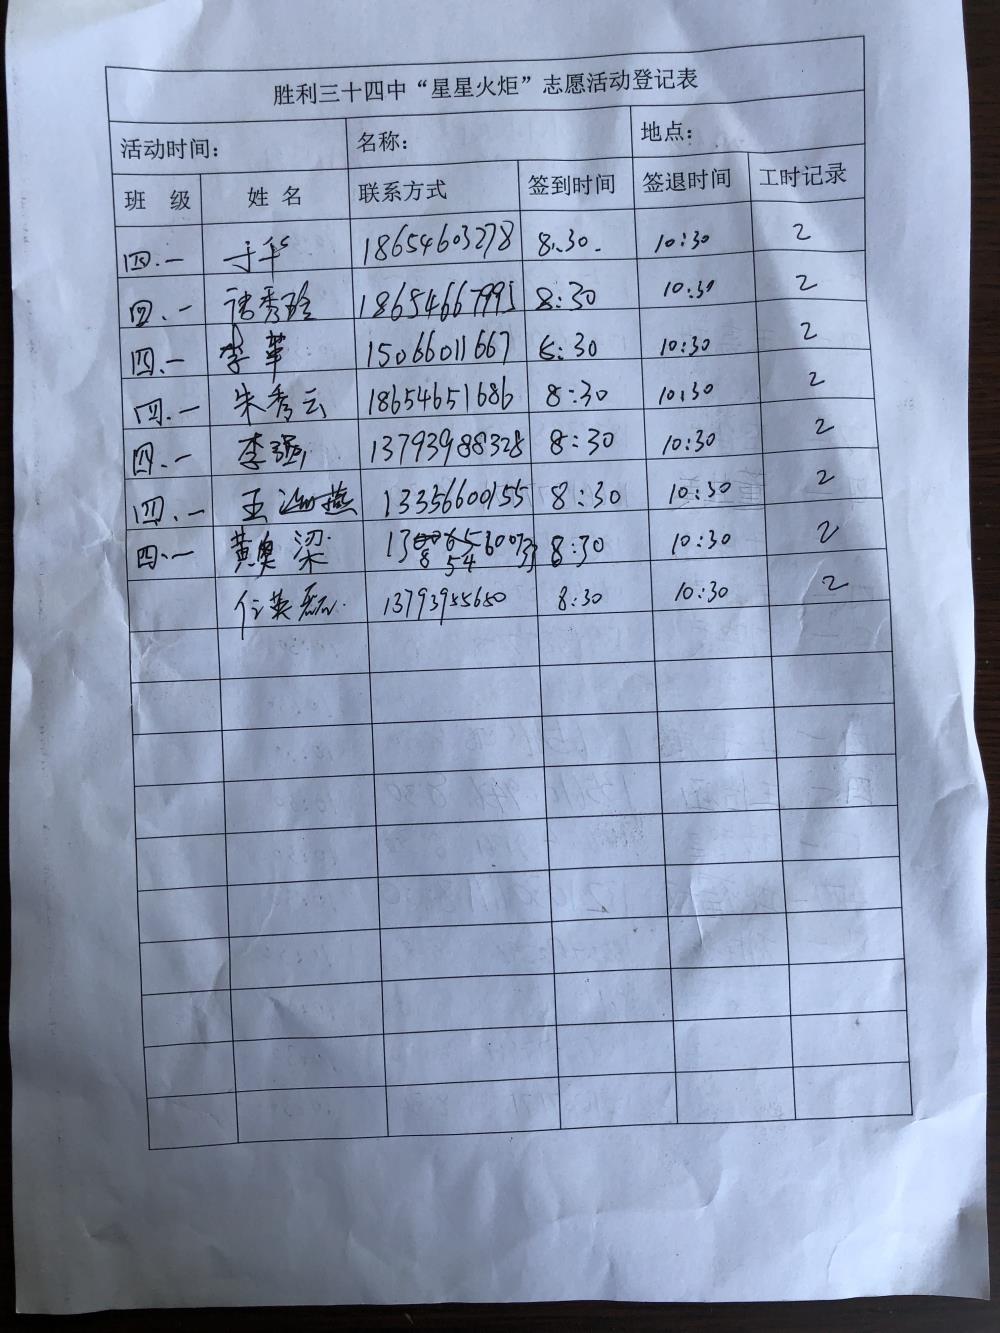 胜利三十四中“星星火炬”志愿活动登记表
活动时间： 名称： 地点：
班 级 姓 名 联系方式 签到时间 签退时间 工时记录
四.一 于华 18654603278 8.30. 10:30 2
四.一 秀玲 18654667995 8:30 10:30 2
四.一 李革 15066011667 8:30 10:30 2
四.一 朱秀云 18654651686 8:30 10:30 2
四.一 李强 13793988328 8:30 10:30 2
四.一 王海燕 13356600155 8:30 10:30 2
四.一 黄奥梁 8:30 10:30 2
任英磊. 13793955650 8:30 10:30 2